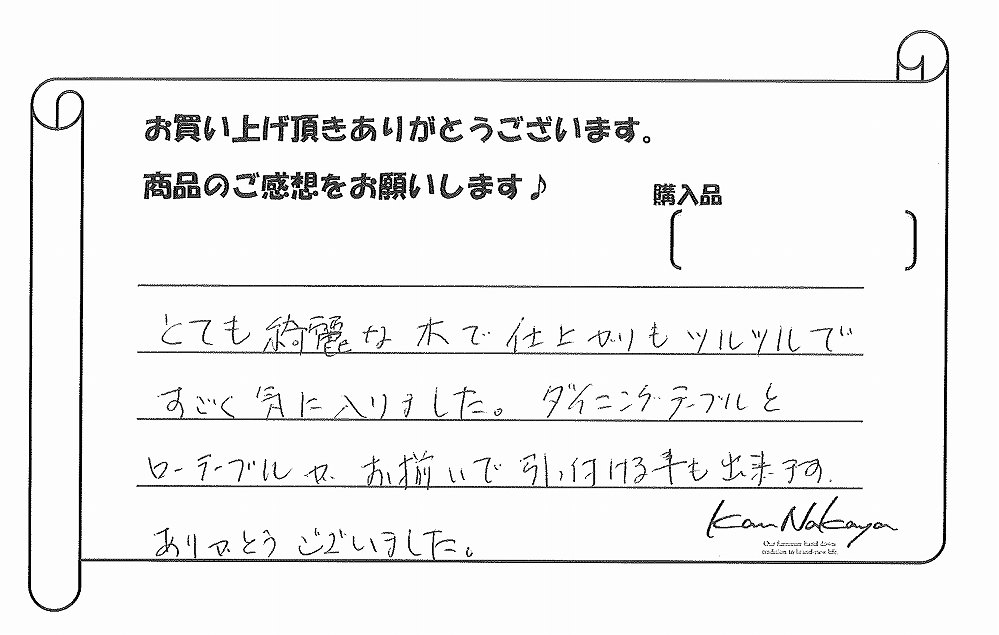 お買い上げ頂きありがとうございます。
商品のご感想をお願いします♪
購入品
とても綺麗な木で仕上がりもツルツルで
すごく気に入りました。ダイニングテーブルと
ローテーブルが、お揃いで引っ付ける事も出来ます。
ありがとうございました。
Kan Nakaya
Our furniture hand down
tradition to brand-new life.